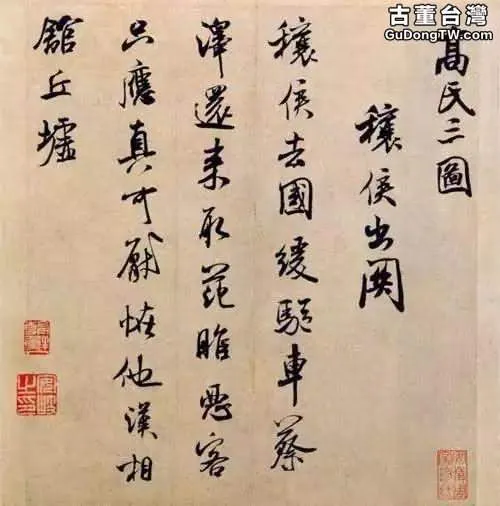 古董台灣
GuDongTW.com
高氏三圖
穰侯出關
穰侯去國緩驅車蔡
澤還來取范睢惡客
只應真可厭怪他漢相
舘丘墟